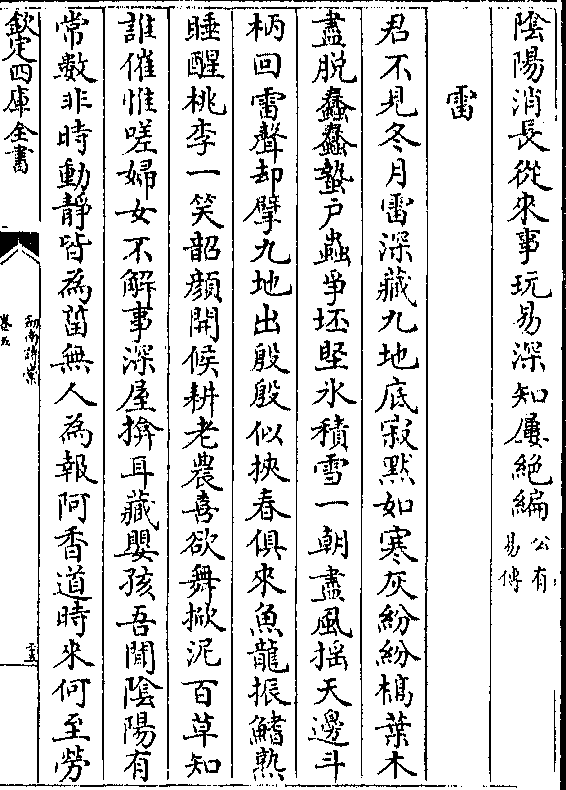 陰陽消長從來事玩易深知屢絶編公有
易傳
雷
君不見冬月雷深藏九地底寂默如寒灰紛紛槁葉木
盡脱蠢蠢蟄户蟲爭坯堅氷積雪一朝盡風揺天邊斗
柄回雷聲却擘九地出殷殷似挾春俱來魚龍振鰭熟
睡醒桃李一笑韶顔開候耕老農喜欲舞掀泥百草知
誰催惟嗟婦女不解事深屋揜耳藏嬰孩吾聞陰陽有
常數非時動靜皆為菑無人為報阿香道時来何至勞
欽定四庫全書
劒南詩稾
卷五